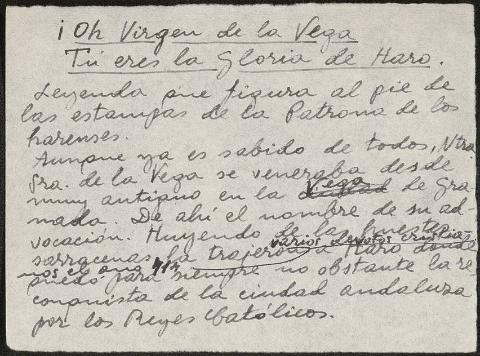 ¡Oh Virgen de la Vega
Tú eres la Gloria de Haro.
Leyenda que figura al pie de
las estampas de la Patrona de los
harenses.
Aunque ya es sabido de todos, Ntra.
Sra. de la Vega se veneraba desde
muy antiguo en la Vega de Gra-
nada. De ahí el nombre de su ad-
vocación. Huyendo de las huestas
sarracenas la trajeron varios devotos cristia-
nos el año 714 a Haro donde
quedó para siempre no obstante la re-
conquista de la ciudad andaluza
por los Reyes Católicos.